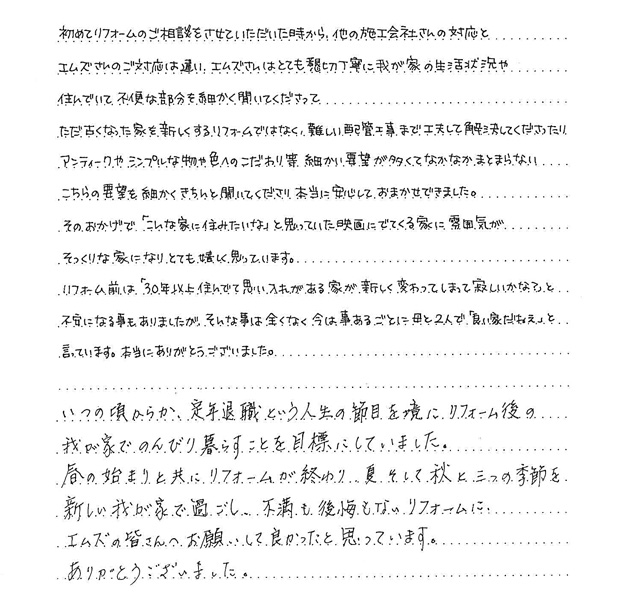 初めてリフォームのご相談をさせていただいた時から、他の施工会社さんの対応と
エムズさんのご対応は違い、エムズさんはとても親切丁寧に我が家の生活状況や
住んでいて不便な部分を細かく聞いてくださって
ただ古くなった家を新しくするリフォームではなく、難しい配管工事まで工夫して解決してくださったり
アンティークやシンプルな物や色へのこだわり等、細かい要望が多くてなかなかまとまらない
こちらの要望を細かくきちんと聞いてくださり本当に安心しておまかせできました。
そのおかげで、「こんな家に住みたいな」と思っていた映画にでてくる家に雰囲気が
そっくりな家になり、とても嬉しく思っています。
リフォーム前は、「30年以上住んでて思い入れがある家が、新しく変わってしまって寂しいかなて」と
不安になる事もありましたが、そんな事は全くなく今は事あるごとに母と2人で「良い家だねぇ」と
言っています。本当にありがとうございました。
いつの頃からか、定年退職という人生の節目を境に、リフォーム後の
我が家でのんびり暮らすことを目標にしていました。
春の始まりと共にリフォームが終わり、夏そして秋と三つの季節を
新しい我が家で過ごし、不満も後悔もないリフォームに、
エムズの皆さんへお願いして良かったと思っています。
ありがとうございました。